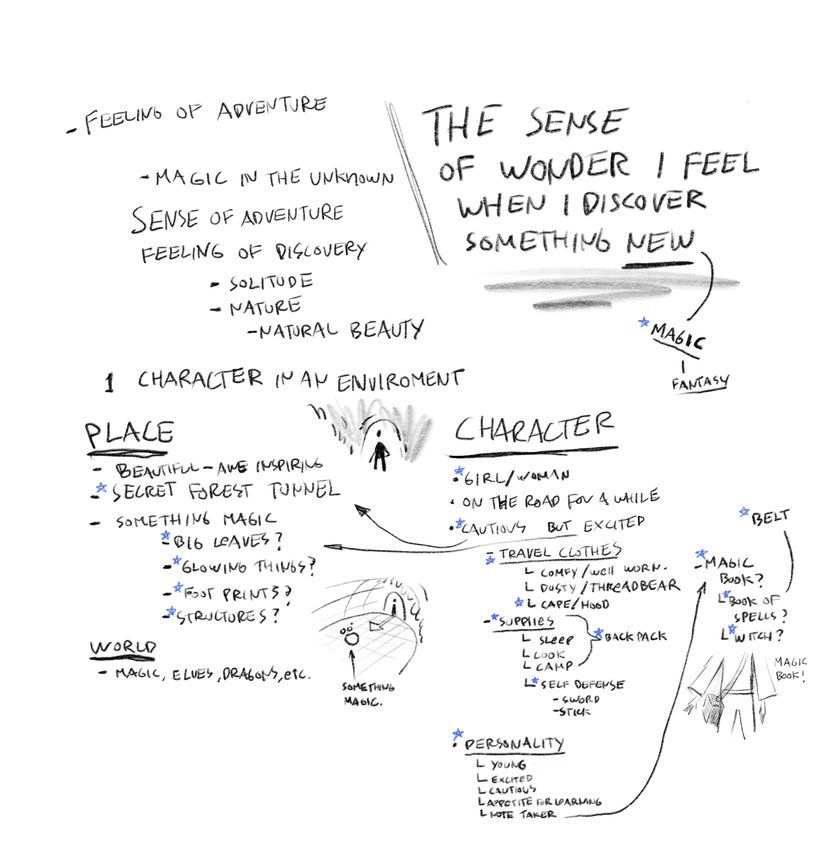 - FEELING OF ADVENTURE
- MAGIC IN THE UNKNOWN
SENSE OF ADVENTURE
FEELING OF DISCOVERY
- SOLITUDE
- NATURE
- NATURAL BEAUTY
THE SENSE
OF WONDER I FEEL
WHEN I DISCOVER
SOMETHING NEW
MAGIC
FANTASY
1 CHARACTER IN AN ENVIROMENT
PLACE
- BEAUTIFUL - AWE INSPIRING
- SECRET FOREST TUNNEL
- SOMETHING MAGIC
- BIG LEAVES?
- GLOWING THINGS?
- FOOT PRINTS?
- STRUCTURES?
WORLD
- MAGIC, ELVES, DRAGONS, etc.
SOMETHING
MAGIC.
CHARACTER
· GIRL/WOMAN
· ON THE ROAD FOR A WHILE
· CAUTIOUS BUT EXCITED
- TRAVEL CLOTHES
COMFY/WELL WORN.
DUSTY/THREADBEAR
CAPE/HOOD
- SUPPLIES
SLEEP
COOK
CAMP
BACKPACK
SELF DEFENSE
- SWORD
- STICK
· PERSONALITY
YOUNG
EXCITED
CAUTIOUS
APPETITE FOR LEARNING
NOTE TAKER
BELT
- MAGIC
BOOK?
BOOK OF
SPELLS?
WITCH?
MAGIC
BOOK!